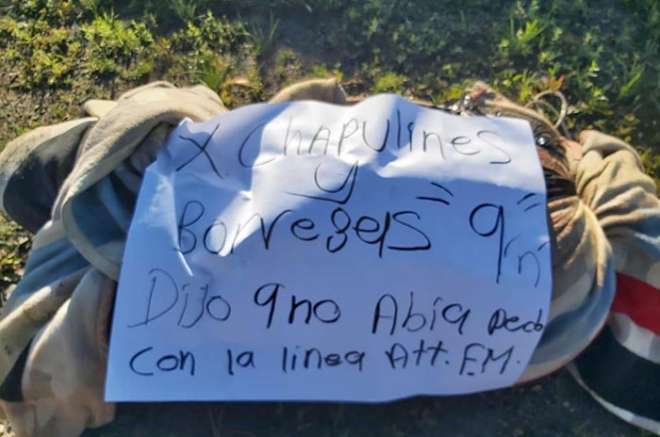 X. CHAPULINES
y
Borregers "q"n"
DIJO qno Abia pedo
con la linea Att. F.M.